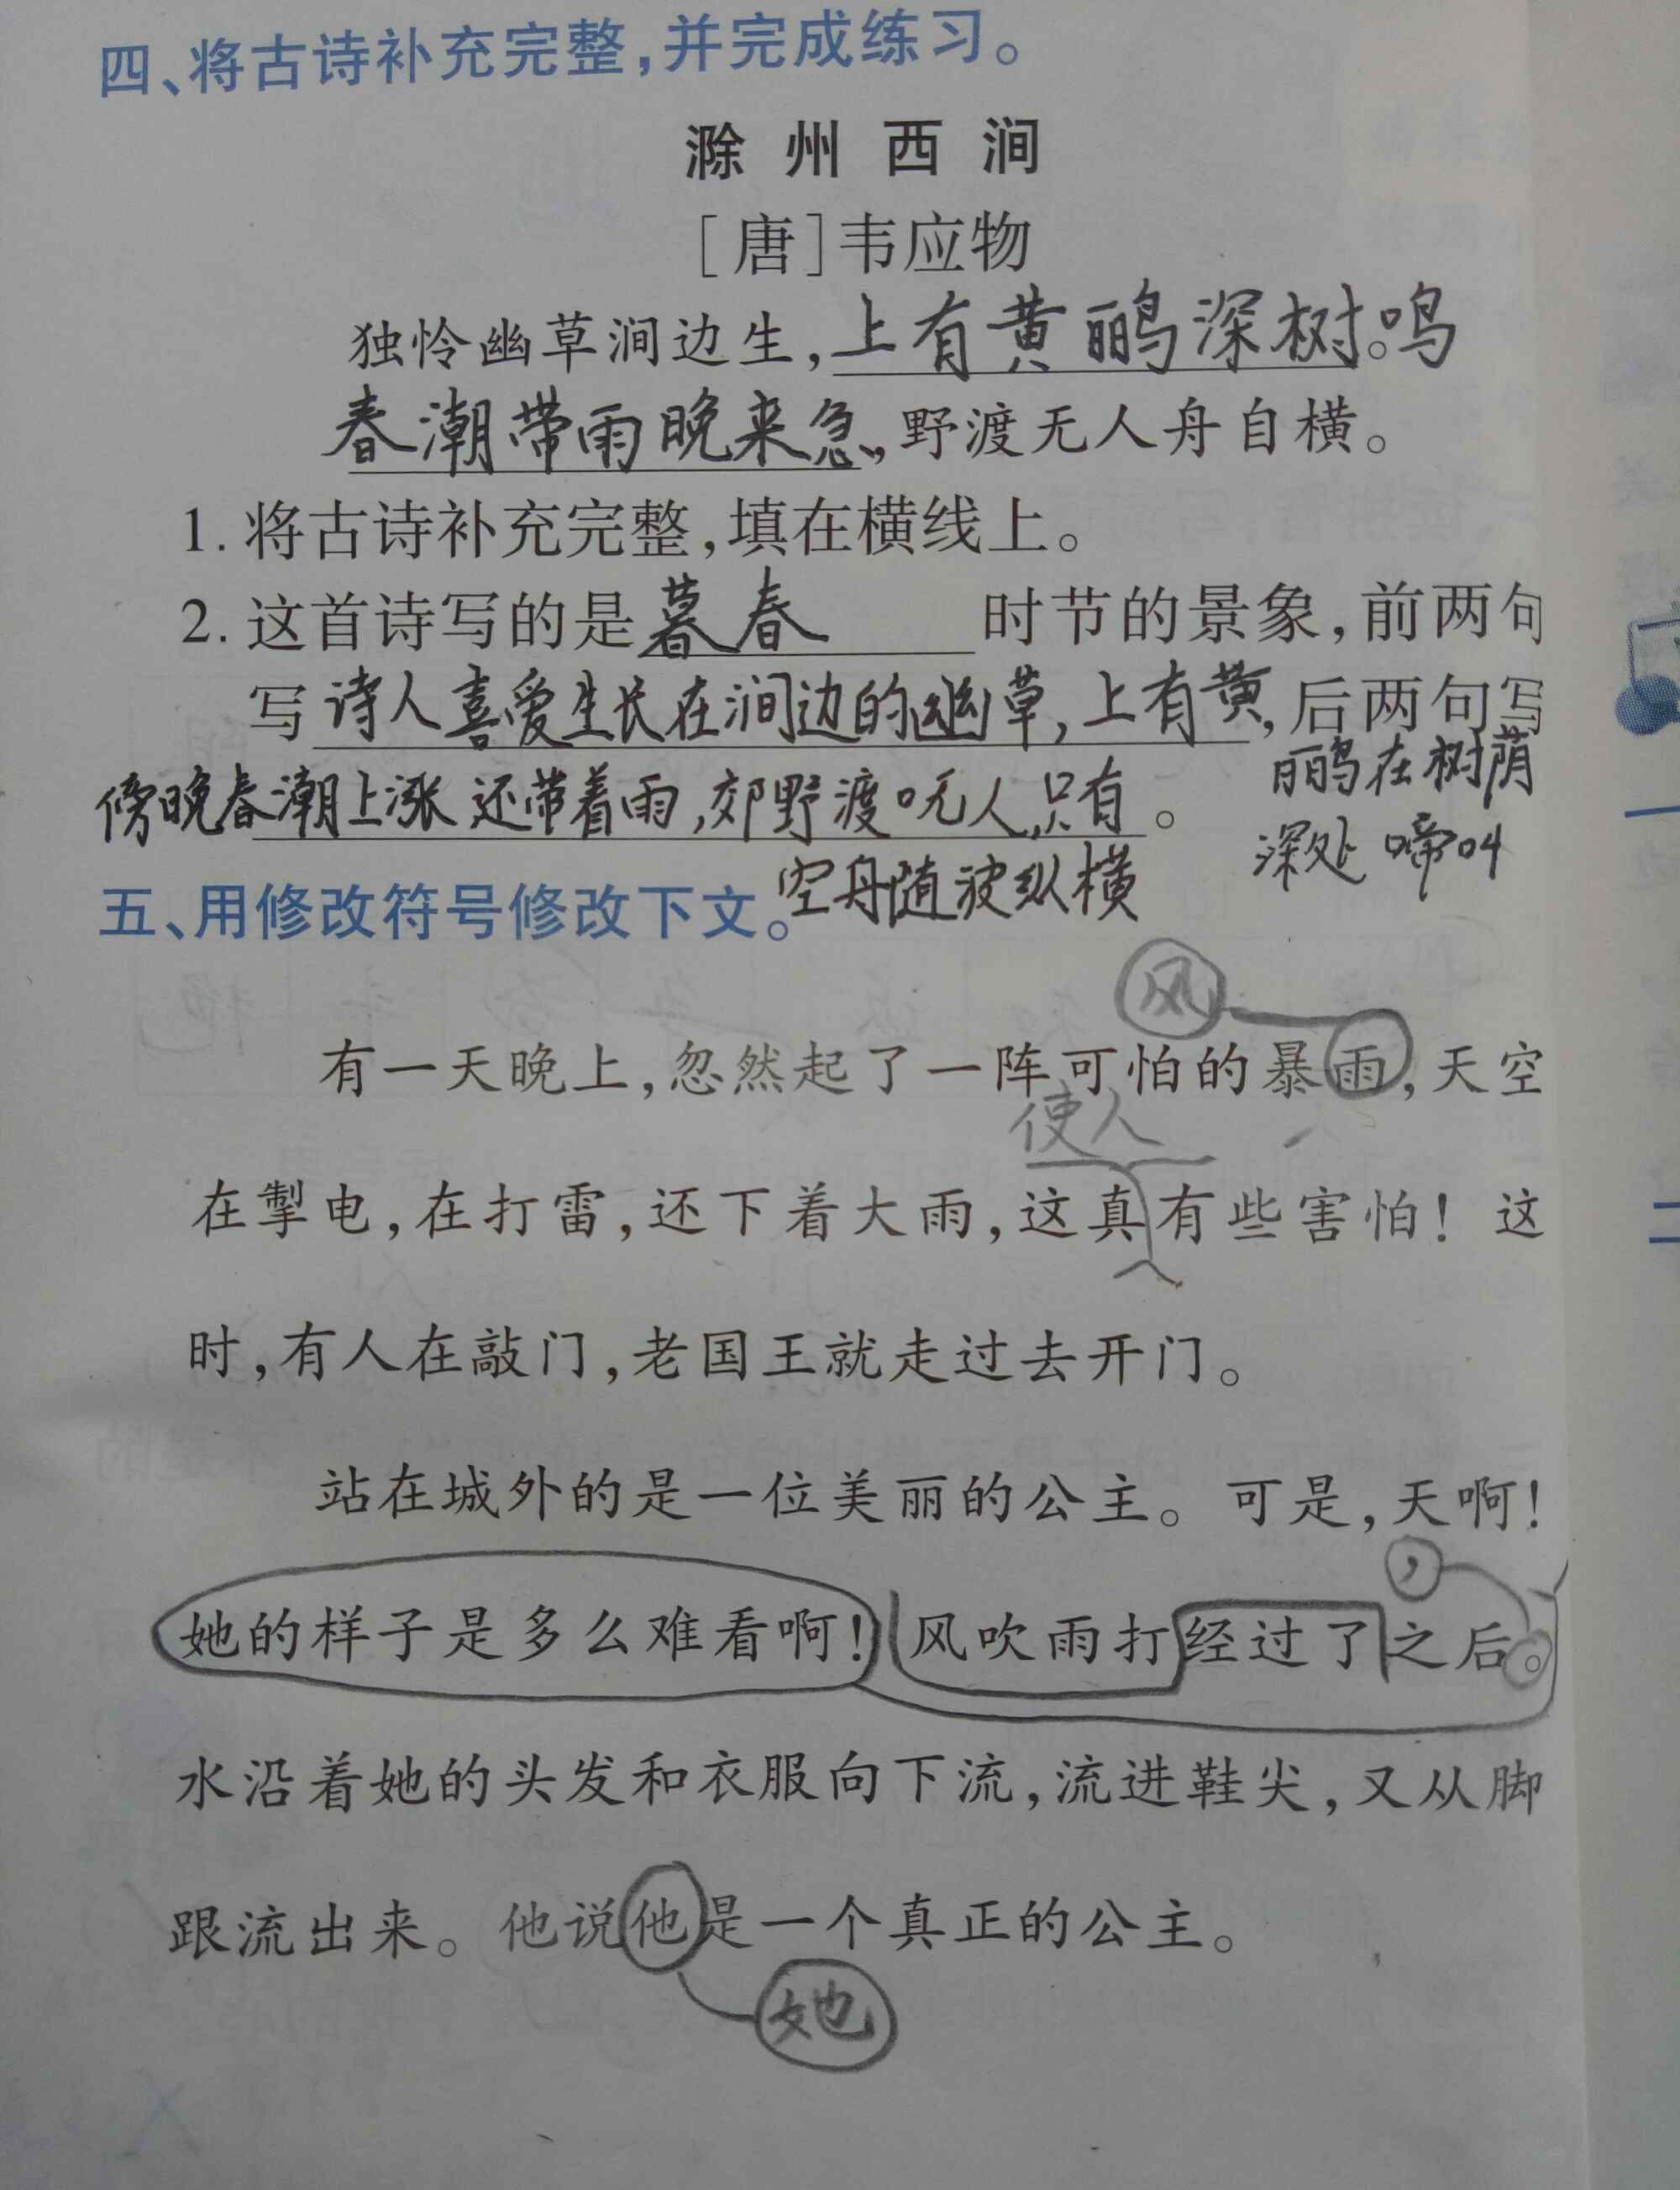 四、将古诗补充完整,并完成练习。
滁州西涧
[唐]韦应物
独怜幽草涧边生,上有黄鹂深树鸣。
春潮带雨晚来急,野渡无人舟自横。
1. 将古诗补充完整,填在横线上。
2. 这首诗写的是暮春时节的景象,前两句
写诗人喜爱生长在涧边的幽草,上有黄,后两句写
鹂在树荫
深处啼叫
傍晚春潮上涨还带着雨,郊野渡口无人,只有。
空舟随波纵横
五、用修改符号修改下文。
风
有一天晚上,忽然起了一阵可怕的暴雨,天空
使人
在掣电,在打雷,还下着大雨,这真有些害怕! 这
时,有人在敲门,老国王就走过去开门。
站在城外的是一位美丽的公主。可是,天啊!
,
她的样子是多么难看啊! 风吹雨打经过了之后。
水沿着她的头发和衣服向下流,流进鞋尖,又从脚
跟流出来。他说他是一个真正的公主。
她